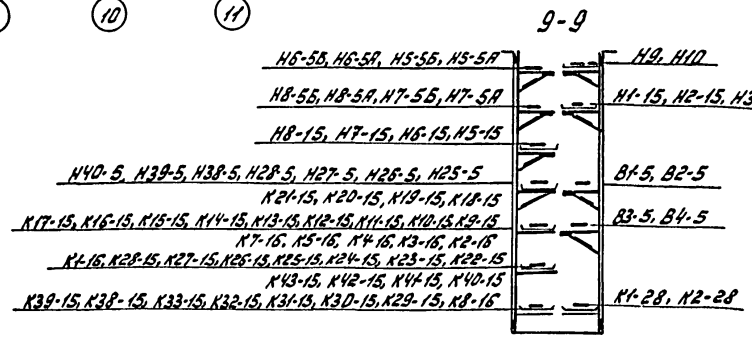 10
11
9-9
Н6-5Б, Н6-5А, Н5-5Б, Н5-5А
Н9, Н10
Н8-5Б, Н8-5А, Н7-5Б, Н7-5А
Н1-15, Н2-15, Н3
Н8-15, Н7-15, Н6-15, Н5-15
Н40-5, Н39-5, Н38-5, Н28-5, Н27-5, Н26-5, Н25-5
В1-5, В2-5
К21-15, К20-15, К19-15, К18-15
К17-15, К16-15, К15-15, К14-15, К13-15, К12-15, К11-15, К10-15, К9-15
В3-5, В4-5
К7-16, К5-16, К4-16, К3-16, К2-16
К1-16, К28-15, К27-15, К26-15, К25-15, К24-15, К23-15, К22-15
К43-15, К42-15, К41-15, К40-15
К39-15, К38-15, К33-15, К32-15, К31-15, К30-15, К29-15, К8-16
К1-28, К2-28